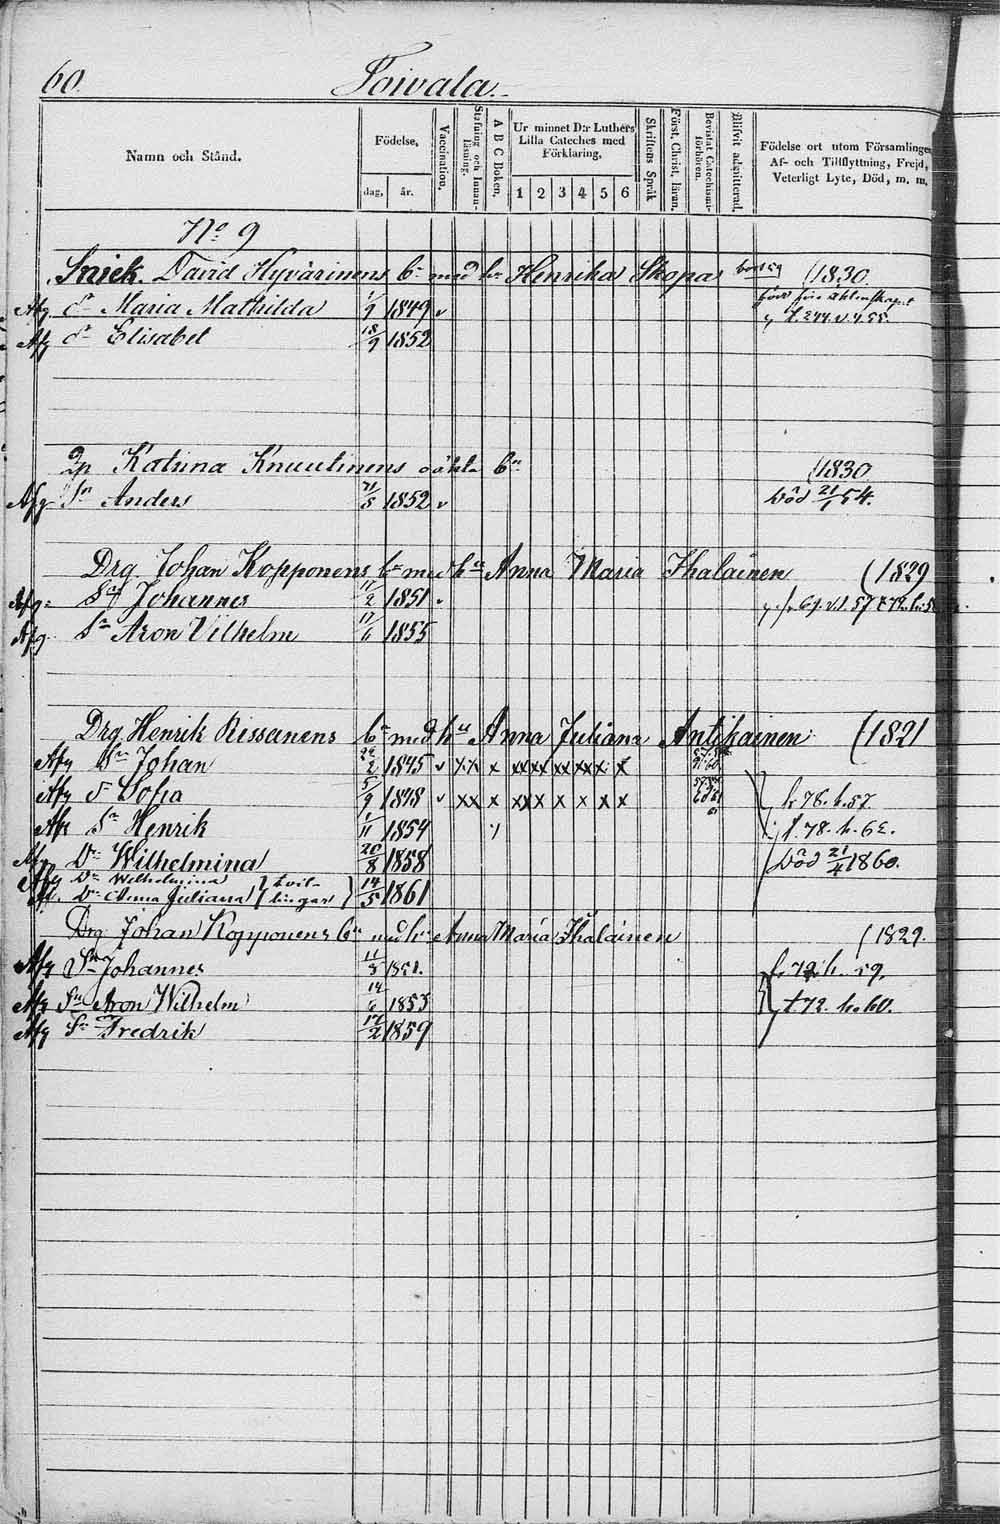 60. Toivala.
Namn och Stånd.
Födelse,
dag, år.
Vaccination.
Stafning och Innan-läsning.
A B C Boken.
Ur minnet D:r Luthers Lilla Cateches med Förklaring,
1 2 3 4 5 6
Skriftens Språk
Först. Christ. läran.
Bevistat Catechismi-förhören.
Blifvit admitterad.
Födelse ort utom Församlingen, Af- och Tillflyttning, Frejd, Veterligt Lyte, Död, m. m.
No 9
Snick. David Hyvärinens bn med hu Henrika Skopa (1830
Afg dr Maria Mathilda 1/9 1849 v
Afg dr Elisabet 18/9 1852
Katrina Knuutinens oäkta bn (1830
Afg Sn Anders 1852 v död 21/1 54.
Drg Johan Kopponens bn med hu Anna Maria Ihalainen (1829
Afg Sn Johannes 11/2 1851 v
Afg Sn Aron Vilhelm 11/6 1855
Drg Henrik Rissanens bn med hu Anna Juliana Antikainen (1821
Afg Sn Johan 1845 v x x x xx xx xx x x x
Afg dr Sofia 5/9 1848 v x x x xx x x x x x f. 78. h. 57.
Afg Sn Henrik 1/11 1854 f. 78. h. 62.
Afg Dr Wilhelmina 20/8 1858 död 21/4 1860.
Afg Dr Wilhelmina } tvil-
Af. Dr Anna Juliana } lingar } 14/5 1861
Drg Johan Kopponens bn med hu Anna Maria Ihalainen (1829.
Afg Sn Johannes 11/3 1851. f. 72. h. 59.
Afg Sn Aron Wilhelm 14/6 1853 t 72. h. 60.
Afg Sn Fredrik 17/2 1859